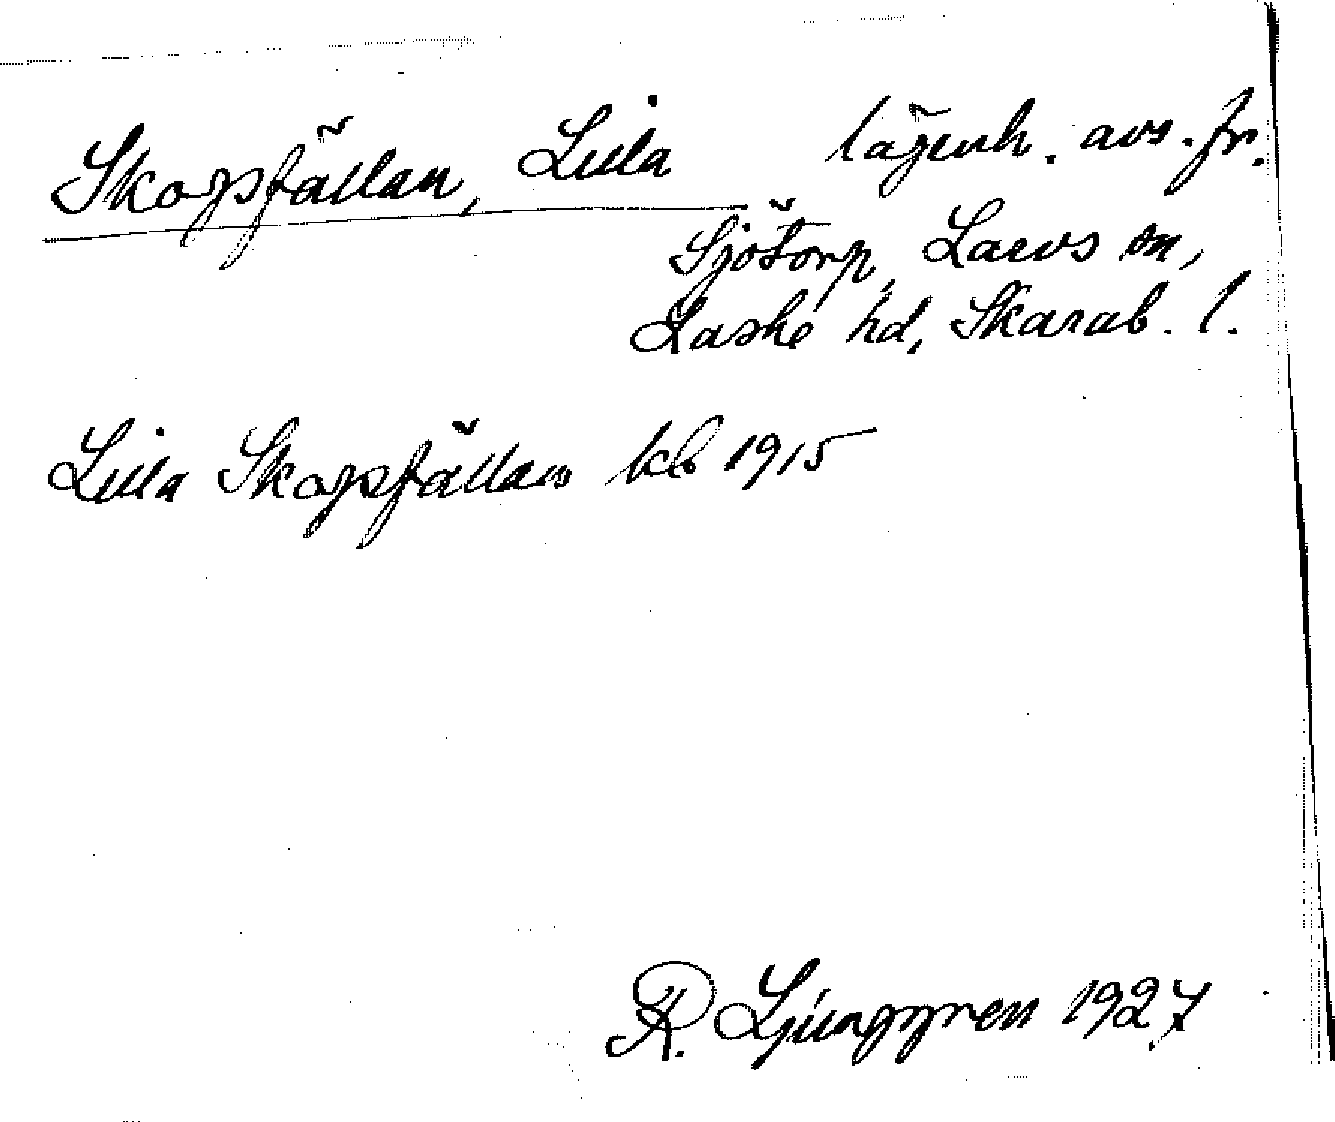 Skogsfällan, Lilla lägenh. avs. fr.
Sjötorp, Larvs sn,
Laske hd, Skarab. l.
Lilla Skogsfällan kb 1915
R. Ljunggren 1927